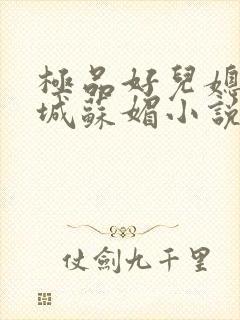 極品好兒媳
城蘇媚小說
仗劍九千里